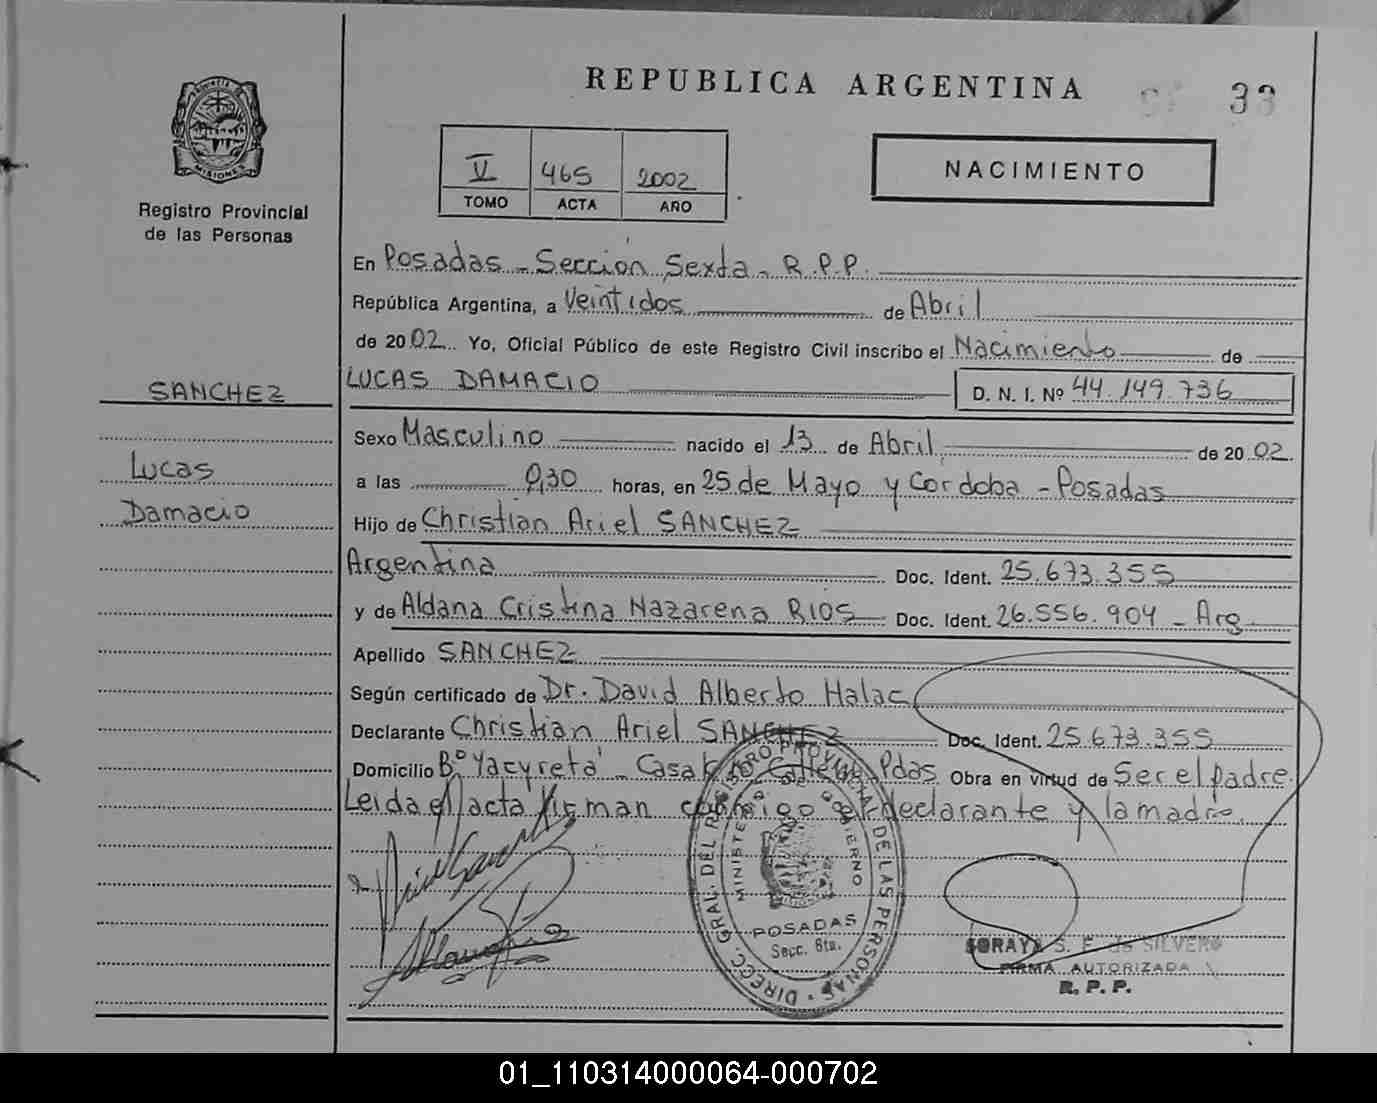 REPUBLICA ARGENTINA
33
MISIONES
Registro Provincial
de las Personas
V 465 2002
TOMO ACTA AÑO
NACIMIENTO
En Posadas - Sección Sexta - R.P.P.
República Argentina, a Veintidos de Abril
de 2002 Yo, Oficial Público de este Registro Civil inscribo el Nacimiento de
LUCAS DAMACIO D. N. I. Nº 44.149.736
SANCHEZ
Lucas
Damacio
Sexo Masculino nacido el 13 de Abril de 2002
a las 0,30 horas, en 25 de Mayo y Cordoba - Posadas
Hijo de Christian Ariel SANCHEZ
Argentina Doc. Ident. 25.673.355
y de Aldana Cristina Nazarena RIOS Doc. Ident. 26.556.904 - Arg.
Apellido SANCHEZ
Según certificado de Dr. David Alberto Halac
Declarante Christian Ariel SANCHEZ Doc. Ident. 25.673.355
Domicilio Bº Yacyretá - Casa Pdas. Obra en virtud de Ser el padre.
Leida el acta firman conmigo el declarante y la madre.
DIRECC. GRAL. DEL REGISTRO PROVINCIAL DE LAS PERSONAS
MINISTERIO DE GOBIERNO
POSADAS
Secc. 6ta.
SORAYA S. F. de SILVERO
FIRMA AUTORIZADA
R. P. P.
01_110314000064-000702